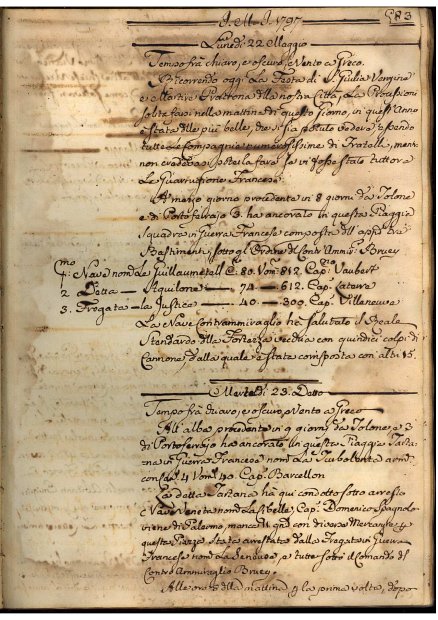 J. M. J. 1797
583
Lunedi 22 Maggio
Tempo frà chiaro, e oscuro, e Vento a Greco.
Ricorrendo oggi La Festa di S. Giulia Vergine
e Martire Protettrice della nostra Città, La Processione
solita farsi nella mattina di questo Giorno, in quest'Anno
è stata delle più belle, che si sia potuto vedere, essendo
tutte le Compagnie numerosissime di Fratelli, mentre
non credeva si potesse fare se vi fosse stata tuttora
La Guarnigione Francese.
A mezzo giorno procedente in 8 giorni da Tolone
e di Porto ferrajo 3. ha ancorato in questa Piaggia
Squadra in Guerra Francese composta di appresso
Bastimenti, sotto gl'Ordini del Contr'Ammir. Bruey
P.mo Nave nom.a Le Guillaumetell C. 80. Vom. 812. Cap.no Vaubert
2 Detta — Aquilone — 74 — 612. Cap. Laterre
3. Fregata — la Justice — 40. — 300. Cap. Villeneuve
La Nave Contrammiraglio ha salutato il Reale
Stendardo della Fortezza vecchia con quindici colpi di
Cannone, dalla quale è stata corrisposta con altri 15.
Martedi 23. Detto
Tempo frà chiaro, e oscuro, e Vento a Greco
All'alba procedente in 9 giorni da Tolone, e 3
di Portoferrajo ha ancorato in questa Piaggia Tarta-
na in Guerra Francese nom.a La Turbolenta arm.
con 4 Vom. 40. Cap. Barcellon
La detta Tartana ha qui condotto sotto arresto
Nave Veneta nom. La Cap. Domenico Spagnolo
viene di Palermo, manca gg con diverse Mercanzie p
questa Piazza stata arrestata dalla Fregata in Guerra
Francese nom. La e tutte sotto il Comando del
Contro Ammiraglio Bruey.
Alle ore della mattina p la prima volta, dopo